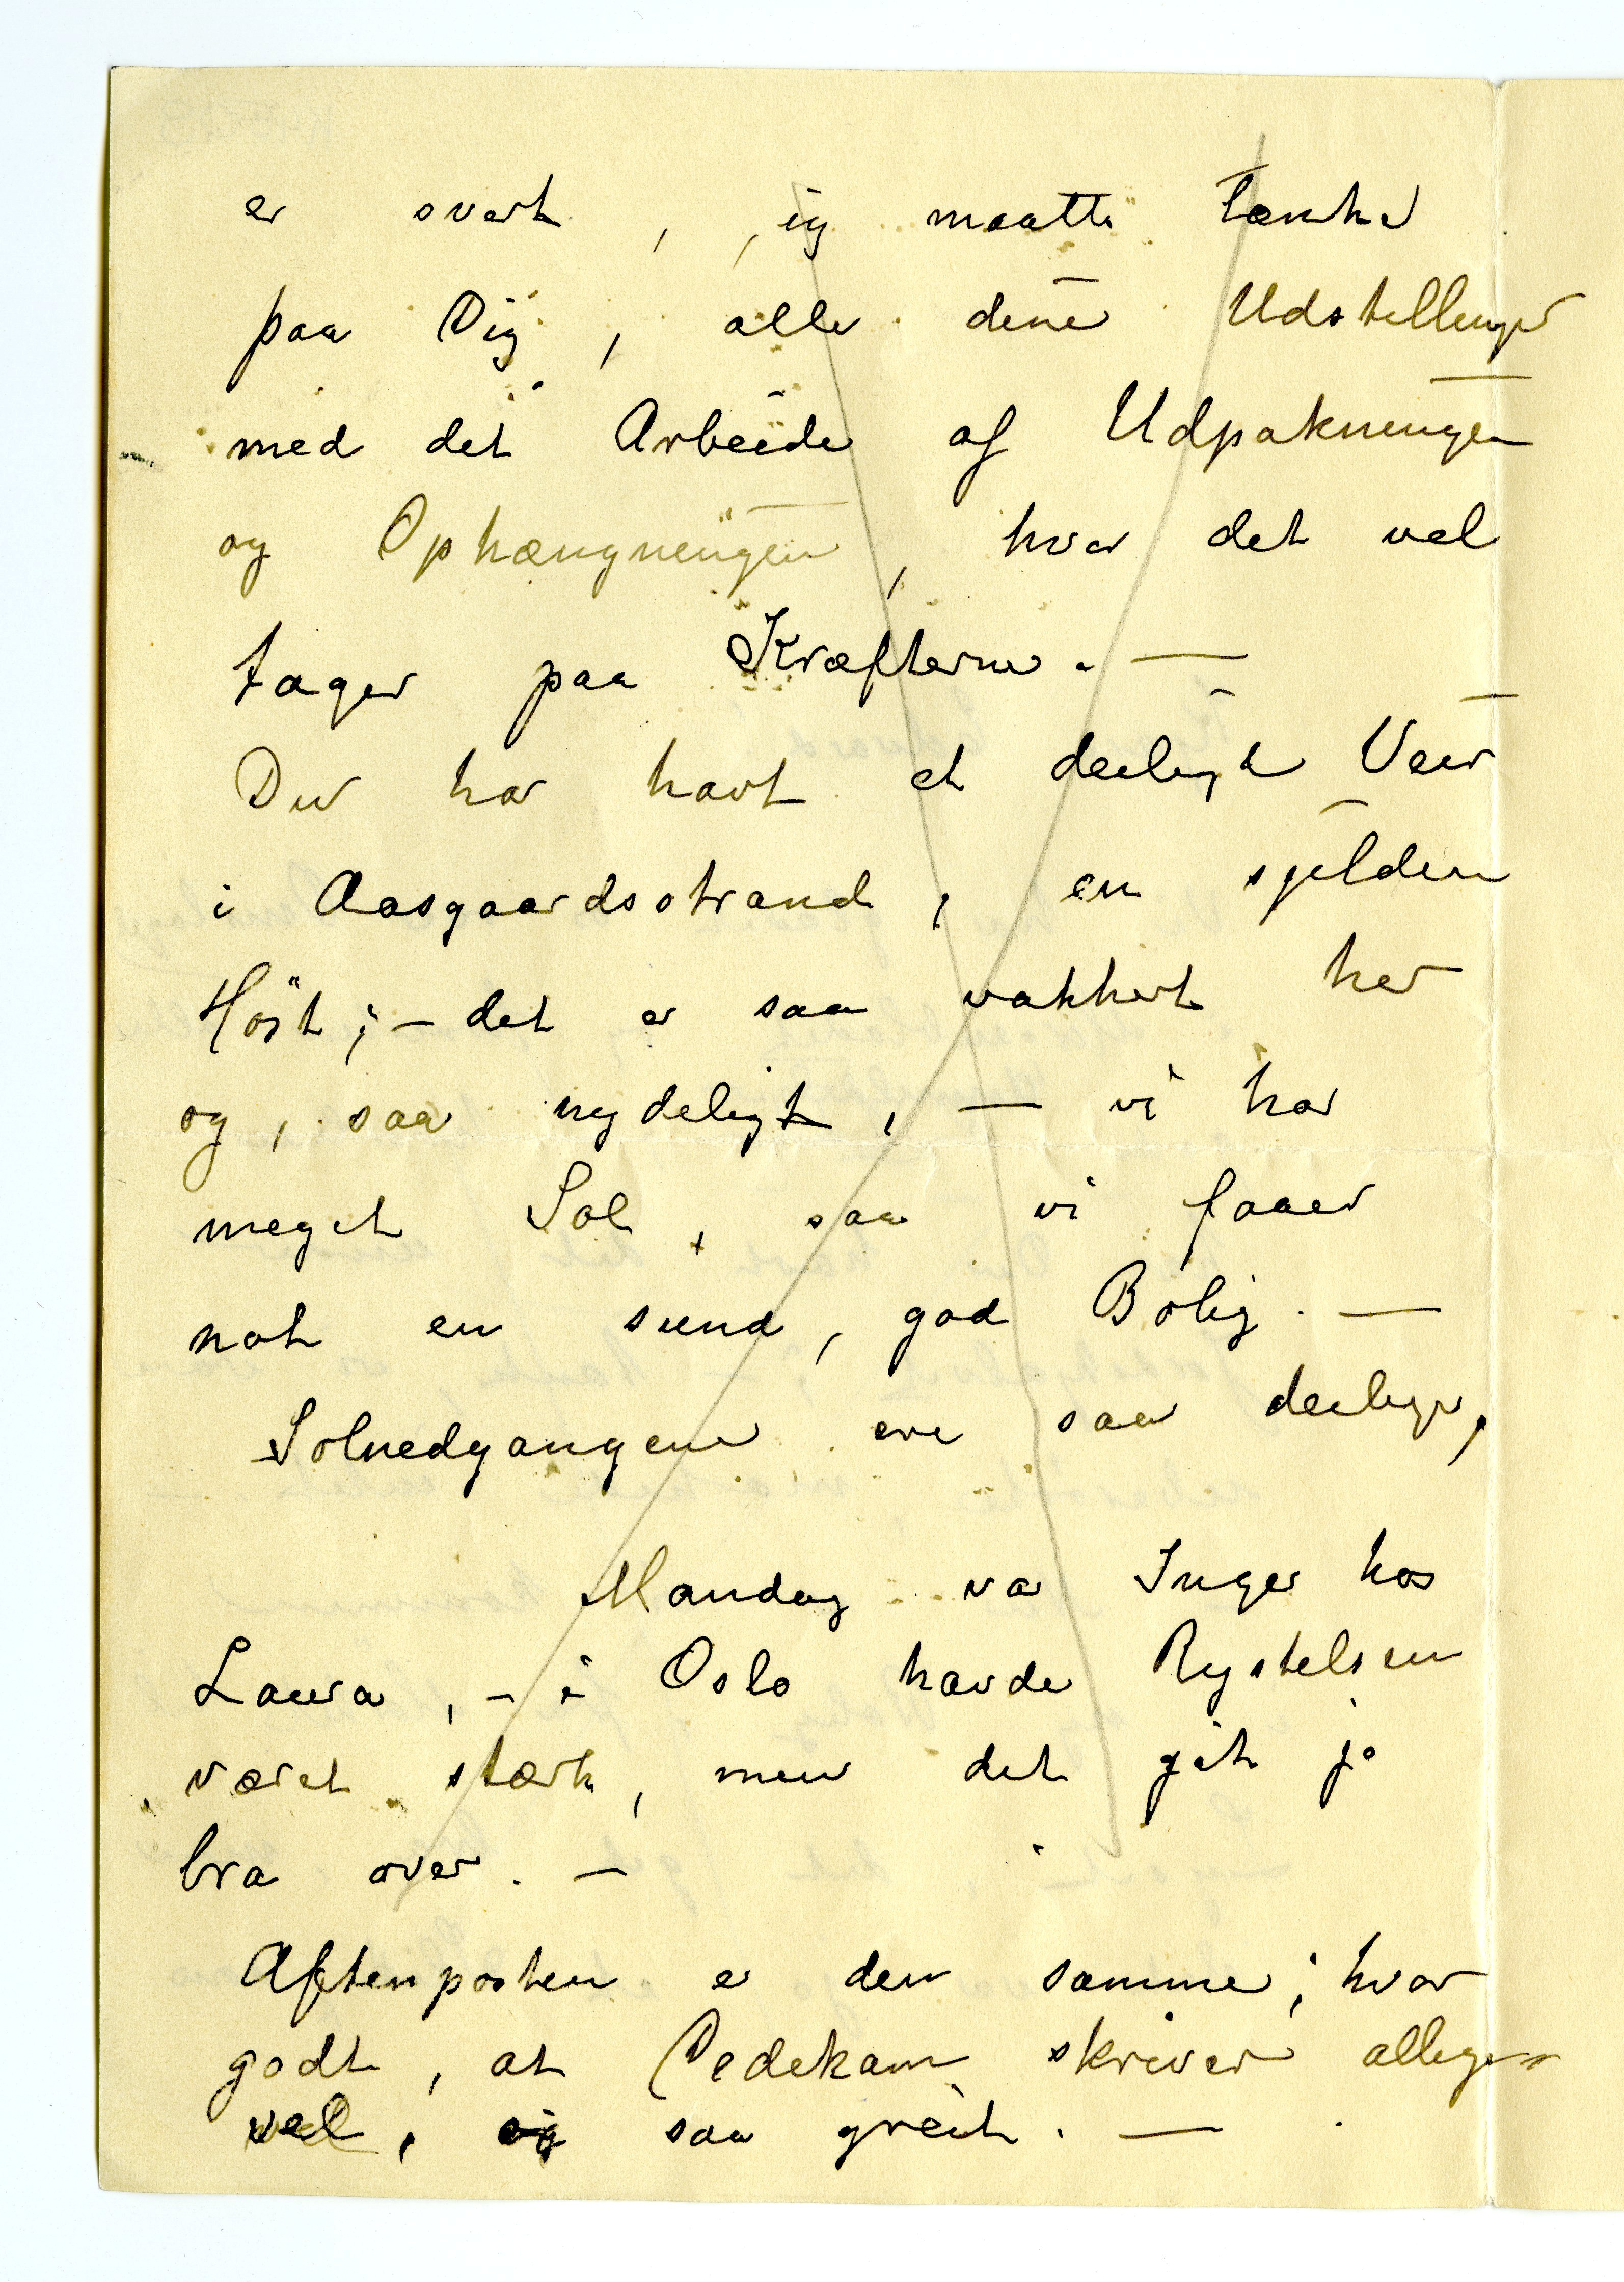 er svært, jeg maatte tænke
paa Dig, alle dine Udstillinger
med det Arbeide af Udpakningen
og Ophængningen, hvor det vel
tager paa Kræfterne. —
Du har havt et deiligt Veir
i Aasgaardsstrand, en sjelden
Höst; – det er saa vakkert her
og, saa nydeligt, — vi har
meget Sol, saa vi faaer
nok en sund, god Bolig. —
Solnedgangene ere saa deilige,
Mandag var Inger hos
Laura, – i Oslo havde Rystelsen
været stærk, men det gik jo
bra over. —
Aftenposten er den samme; hvor
godt, at Dedekam skriver allige
vel, og saa greit. —